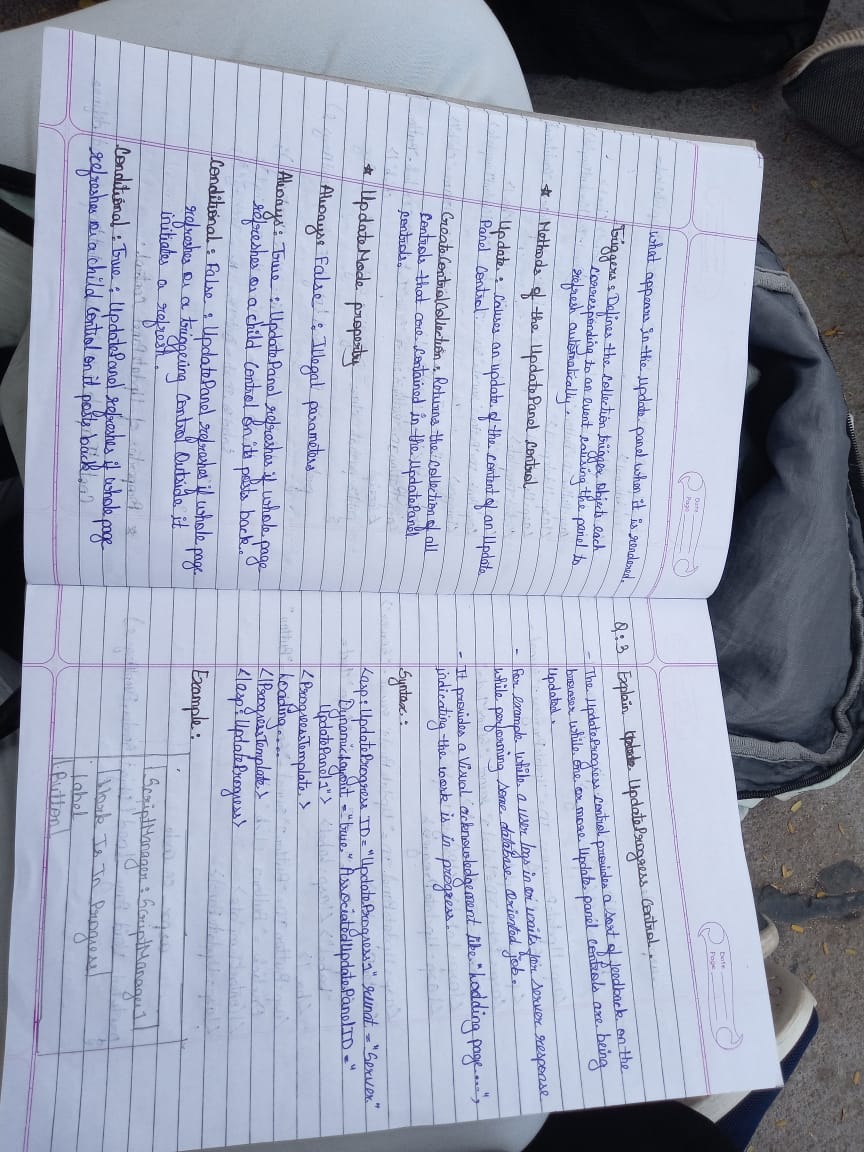 Date
Page
what appears in the update panel when it is rendered.
Triggers : Defines the collection trigger objects each
corresponding to an event causing the panel to
refresh automatically.
* Methods of the UpdatePanel control
Update : Causes an update of the content of an Update
Panel control.
CreateControlCollection : Returns the collection of all
controls that are contained in the UpdatePanel
controls.
* UpdateMode property
Always: False : Illegal parameters
Always : True : UpdatePanel refreshes if whole page
refreshes or a child control on its posts back.
Conditional : False : UpdatePanel refreshes if whole page
refreshes or a triggering control Outside it
initiates a refresh.
Conditional : True : UpdatePanel refreshes if whole page
refreshes or a child control on it posts back.
Date
Page
Q:3 Explain UpdateProgress Control.
- The UpdateProgress control provides a sort of feedback on the
browser while one or more Update panel controls are being
updated.
- For example while a user logs in or waits for server response
while performing some database oriented job.
- It provides a Visual acknowledgement like "Lodding page....",
indicating the work is in progress.
Syntax :
<asp:UpdateProgress ID="UpdateProgress1" runat="Server"
DynamicLayout="true" AssociatedUpdatePanelID="
UpdatePanel1">
<ProgressTemplate>
Loading....
</ProgressTemplate>
</asp:UpdateProgress>
Example :
ScriptManager : ScriptManager1
Work Is In Progress
Label
Button